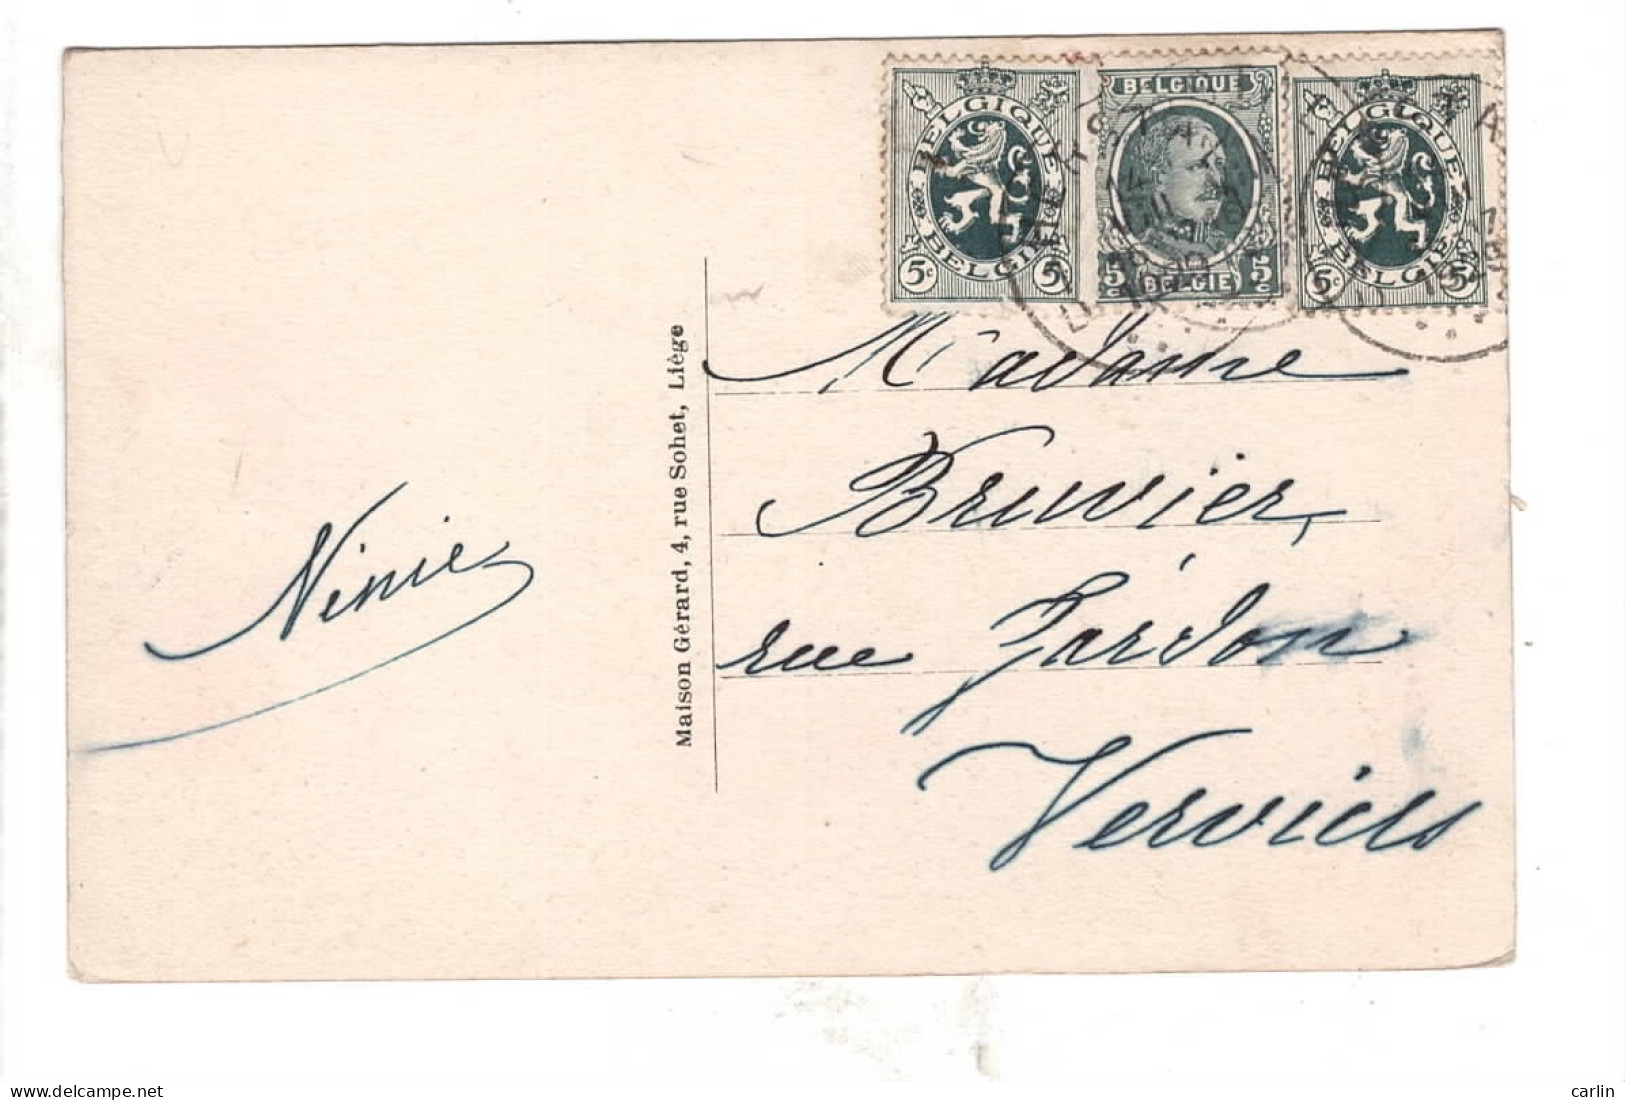 BELGIQUE
BELGIË
5c 5c
BELGIQUE
5c 5c
(BELGIE)
BELGIQUE
BELGIË
5c 5c
Madame
Bruwier,
rue Jardon
Verviers
Ninie
Maison Gérard, 4, rue Sohet, Liège
www.delcampe.net
carlin